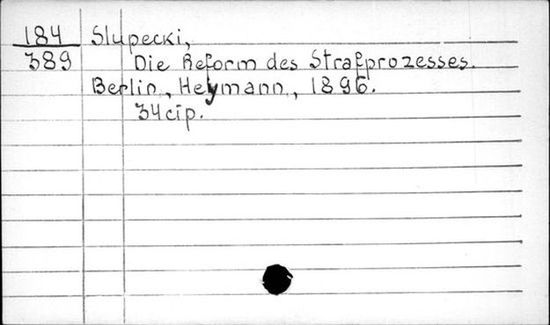 184 Slupecki,
389 Die Reform des Strafprozesses.
Berlin, Heymann, 1896.
34 cip.